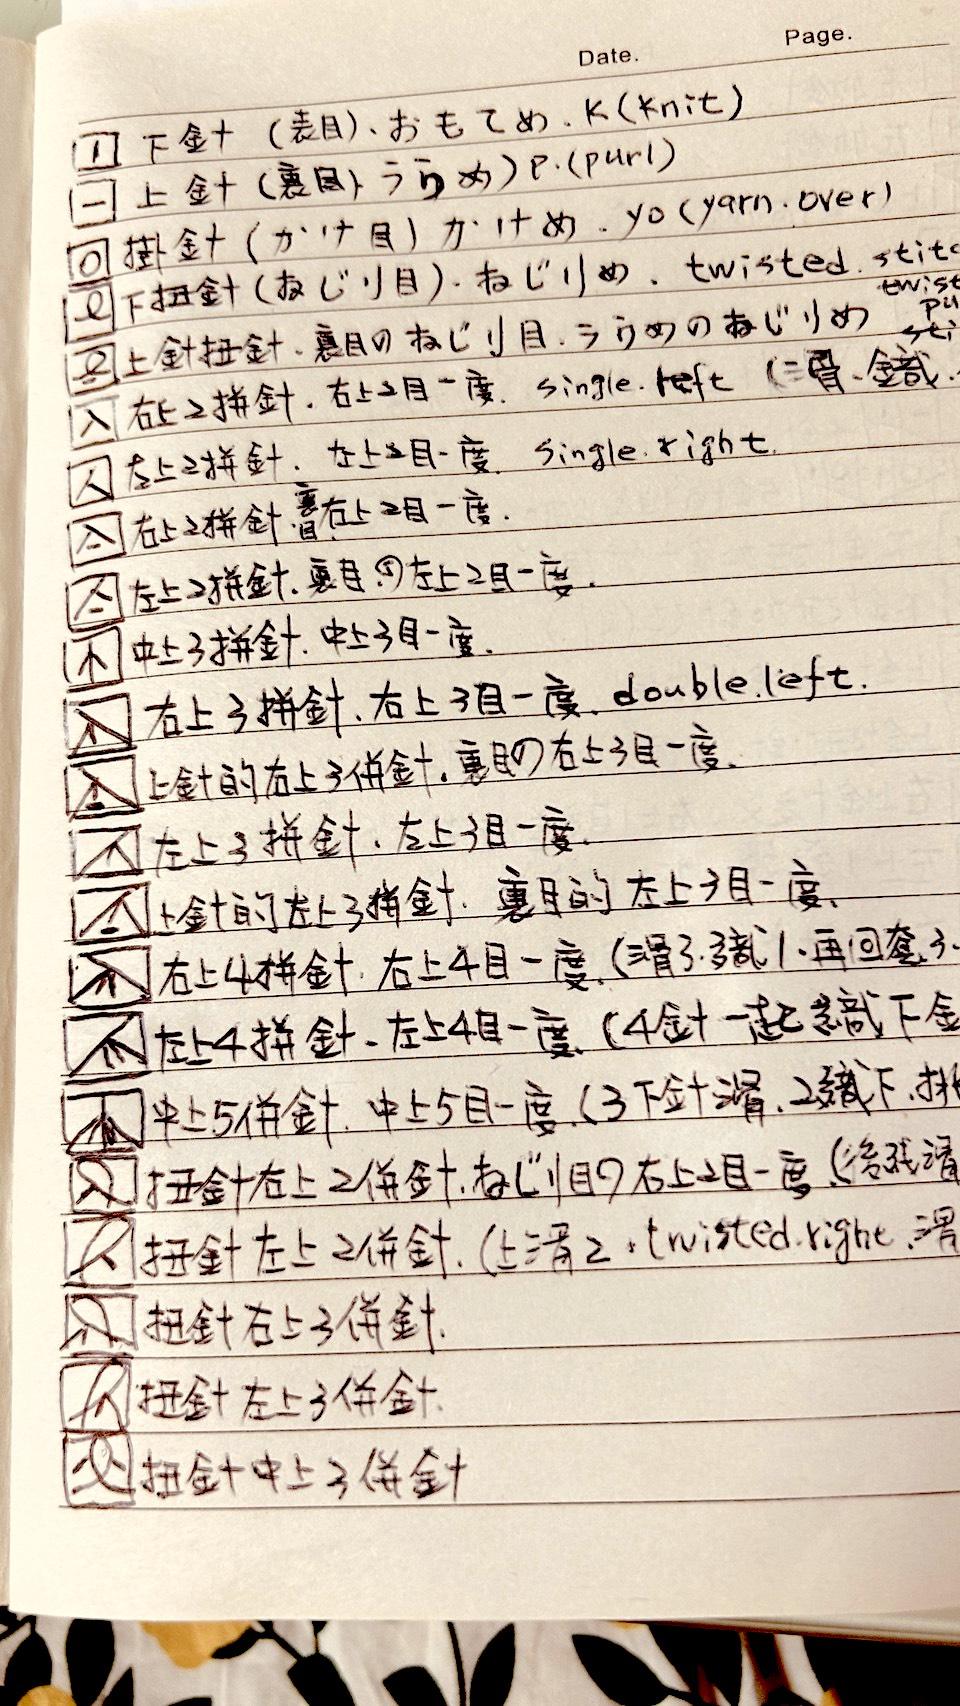 Date. Page.
下針 (表目)、おもてめ. K(knit)
上針 (裏目) うらめ) P.(purl)
掛針 (かけ目) かけめ. yo(yarn.over)
下扭針 (ねじり目). ねじりめ. twisted. stitc
上針扭針. 裏目のねじり目. うらめのねじりめ twist pu sti
右上2拼針. 右上2目一度. single. left (滑.織.
左上2拼針. 左上2目一度. single.right.
右上2拼針 裏目右上2目一度.
左上2拼針. 裏目の左上2目一度.
中上3拼針. 中上3目一度.
右上3拼針. 右上3目一度. double.left.
上針的右上3併針. 裏目の右上3目一度.
左上3拼針. 左上3目一度.
上針的左上3拼針. 裏目的左上3目一度.
右上4拼針. 右上4目一度. (滑3.織1.再回套3.
左上4拼針. 左上4目一度. (4針一起織下金
中上5併針. 中上5目一度. (3下針滑. 2織下.
扭針右上2併針. ねじり目の右上2目一度. (
扭針左上2併針. (上滑2. twisted.right. 滑
扭針右上3併針.
扭針左上3併針.
扭針中上3併針